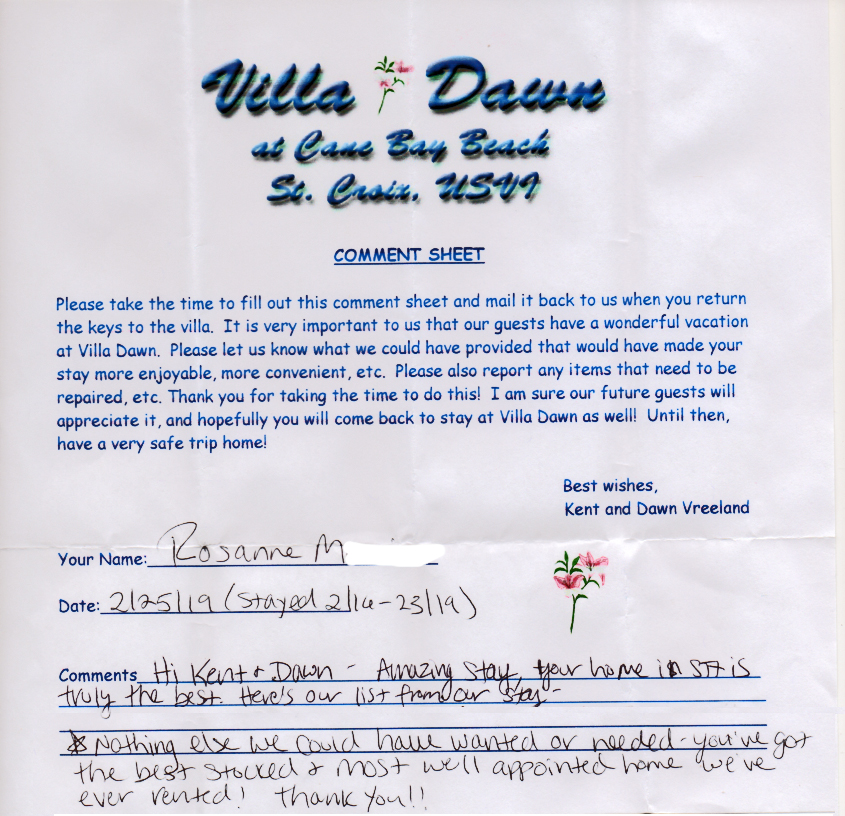 Villa Dawn
at Cane Bay Beach
St. Croix, USVI
COMMENT SHEET
Please take the time to fill out this comment sheet and mail it back to us when you return
the keys to the villa. It is very important to us that our guests have a wonderful vacation
at Villa Dawn. Please let us know what we could have provided that would have made your
stay more enjoyable, more convenient, etc. Please also report any items that need to be
repaired, etc. Thank you for taking the time to do this! I am sure our future guests will
appreciate it, and hopefully you will come back to stay at Villa Dawn as well! Until then,
have a very safe trip home!
Best wishes,
Kent and Dawn Vreeland
Your Name: Rosanne M
Date: 2/25/19 (Stayed 2/16-23/19)
Comments Hi Kent & Dawn - Amazing stay, your home in STX is
truly the best. Here's our list from our stay-
* Nothing else we could have wanted or needed - you've got
the best stocked & most well appointed home we've
ever rented! Thank you!!